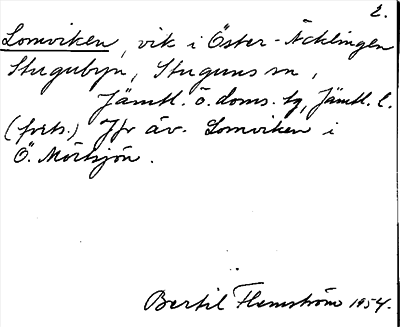 2.
Lomviken, vik i Öster-Äcklingen
Stugubyn, Stuguns sn,
Jämtl. ö. doms. tg, Jämtl. l.
(forts.) Jfr äv. Lomviken i
Ö. Mörtsjön.
Bertil Flemström 1954.